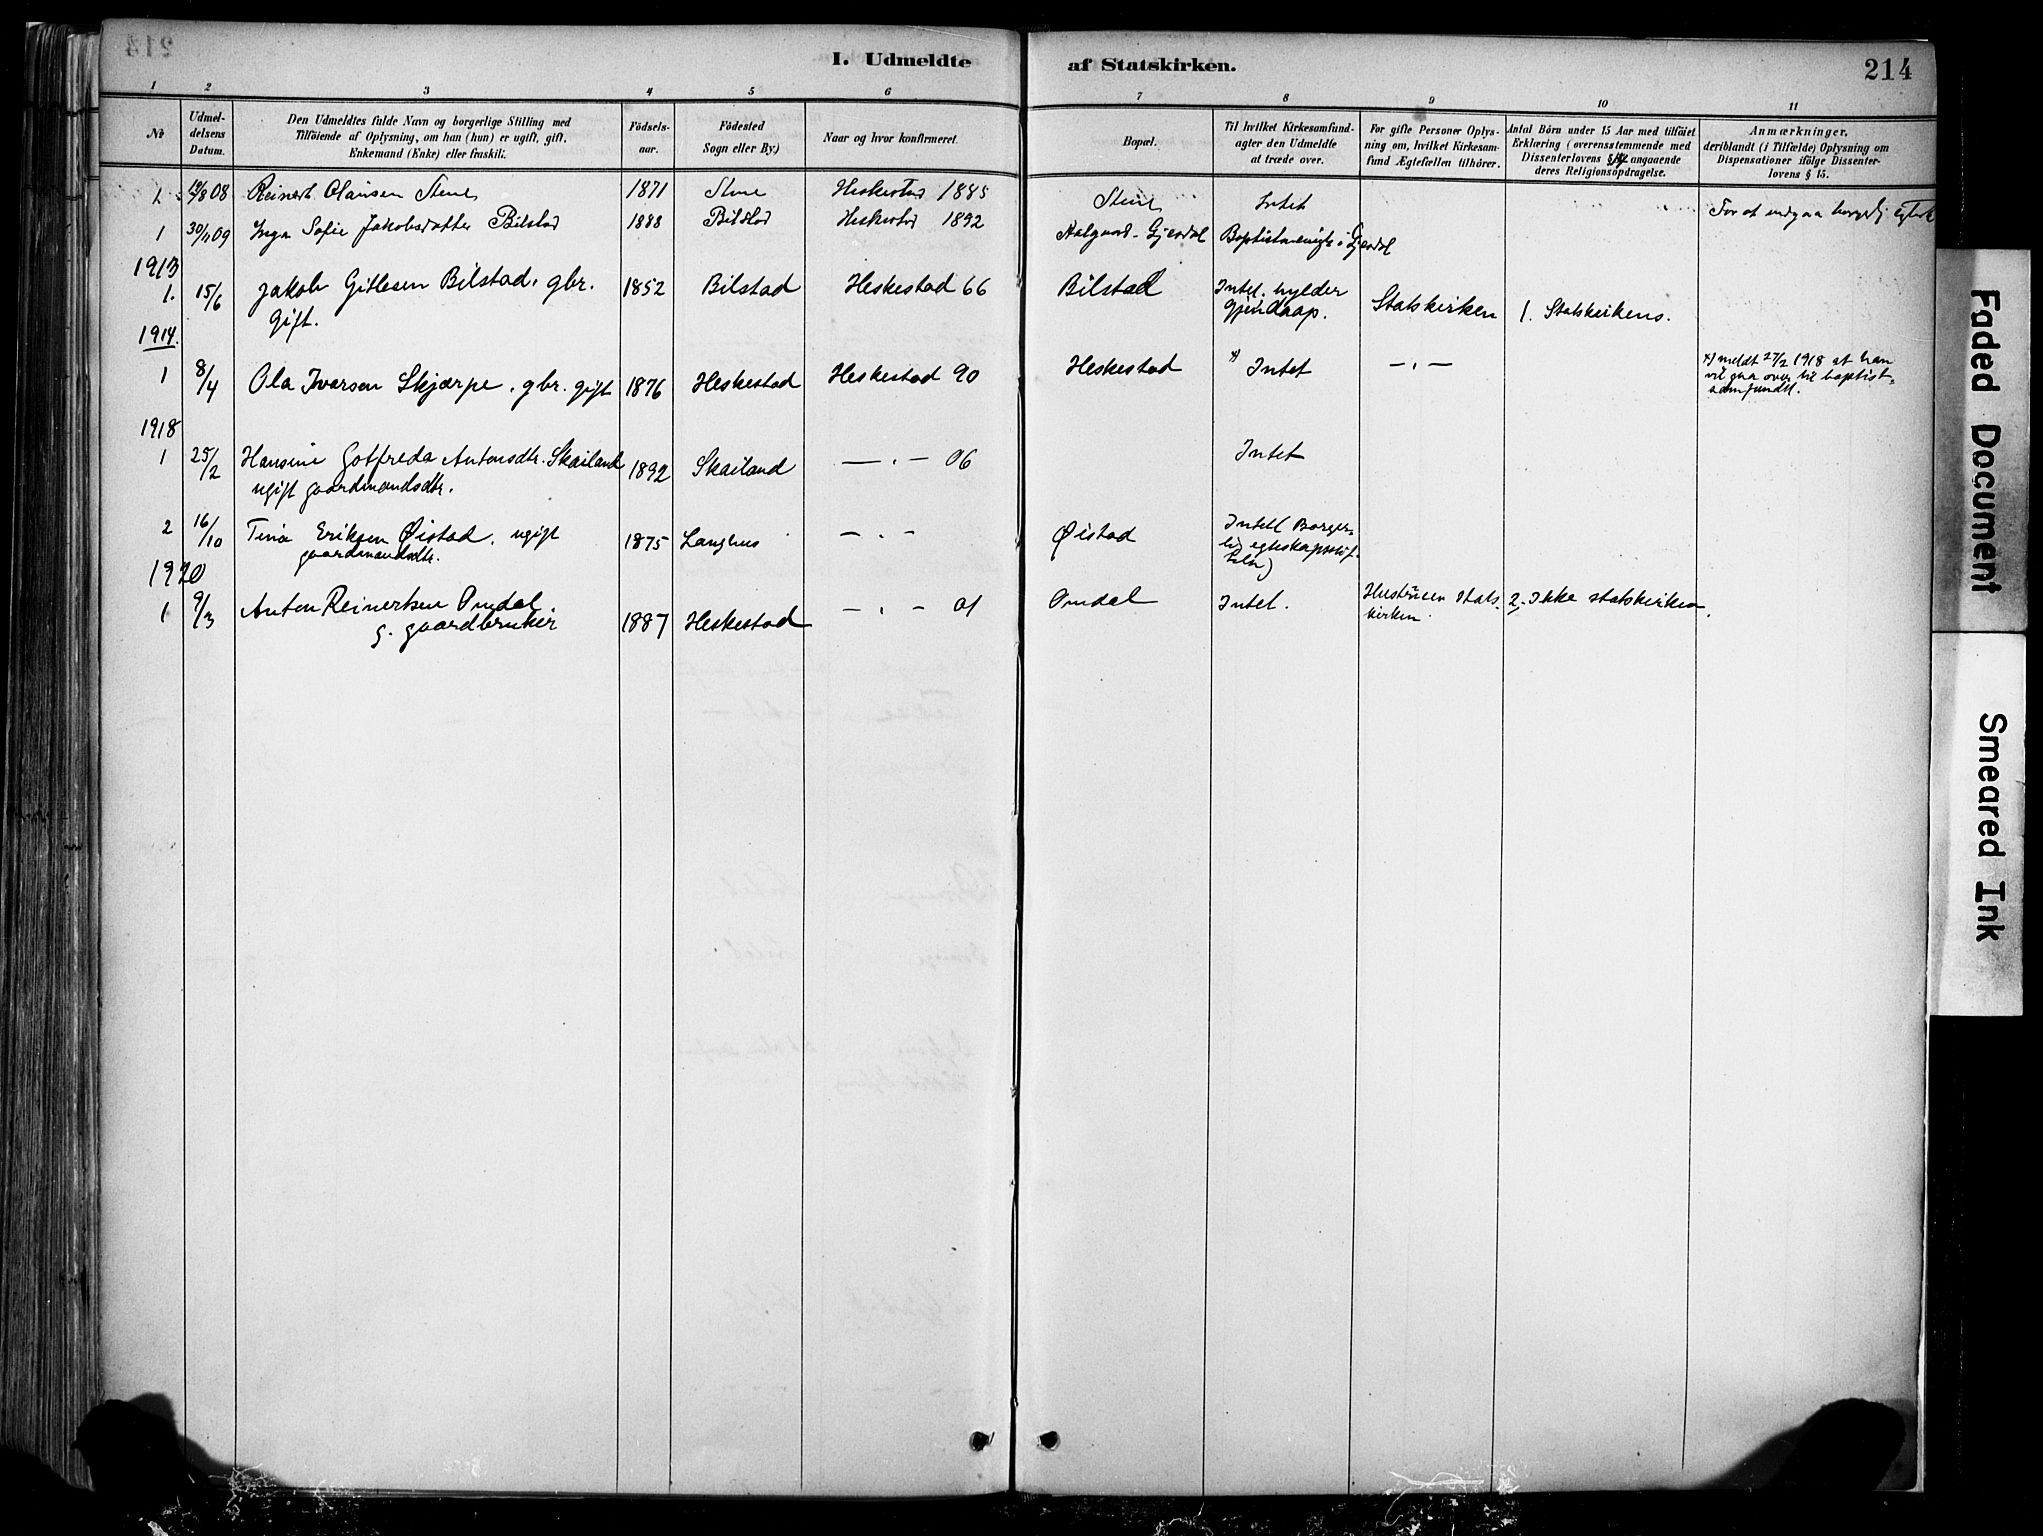 I. Udmeldte af Statskirken.
214
1 2 3 4 5 6 7 8 9 10 11
No
Udmel-
delsens
Datum.
Den Udmeldtes fulde Navn og borgerlige Stilling med
Tilføiende af Oplysning, om han (hun) er ugift, gift,
Enkemand (Enke) eller fraskilt.
Fødsels-
aar.
Fødested
Sogn eller By.)
Naar og hvor konfirmeret.
Bopæl.
Til hvilket Kirkesamfund-
agter den Udmeldte
at træde over.
For gifte Personer Oplys-
ning om, hvilket Kirkesam-
fund Ægtefællen tilhører.
Antal Børn under 15 Aar med tilføiet
Erklæring (overensstemmende med
Dissenterlovens § angaaende
deres Religionsopdragelse.
Anmærkninger,
deriblandt (i Tilfælde) Oplysning om
Dispensationer ifølge Dissenter-
lovens § 15.
1. 08 Reinert Olausen Stene 1871 Stene Heskestad 1885 Stene Intet For at indgaa borgerlig
1 30/11 09 Inga Sofie Jakobsdatter Bilstad 1888 Bilstad Heskestad 1892 Aalgaard - Gjesdal Baptistmenigh. i Gjesdal
1913
1. 15/6 Jakob Gitlesen Bilstad, gbr. 1852 Bilstad Heskestad 66 Bilstad Intet. hylder Statskirken 1. Statskirkens.
gift. gjendaap.
1914.
1 8/4 Ola Ivarsen Skjærpe, gbr. gift 1876 Heskestad Heskestad 90 Heskestad x) Intet — " — x) meldt 27/2 1918 at han
vil gaa over til baptist-
samfundet.
1918
1 25/2 Hansine Gotfreda Antonsdtr. Skailand 1892 Skailand — " — 06 Intet
ugift gaardmandsdtr.
2 16/10 Tina Eriksen Øistad, ugift 1875 Langhus — " — Øistad Intet (Borger-
gaardmandsdtr. lig egteskapsstif-
telse)
1920
1 9/3 Anton Reinertsen Omdal, 1887 Heskestad — " — 01 Omdal Intet. Hustruen Stats- 2. Ikke statskirken.
g. gaardbruker kirken.
Faded Document
Smeared Ink